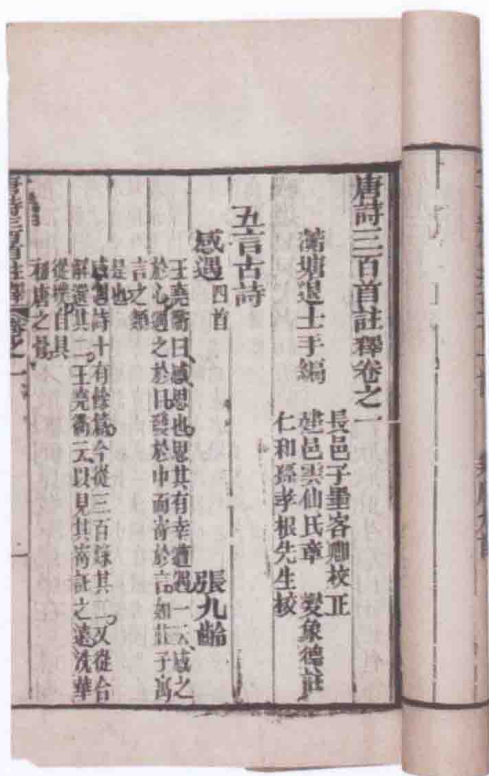 唐詩三百首註釋卷之一
蘅塘退士手編
長邑子墨客卿校正
建邑雲仙氏章燮象德註
仁和孫孝根先生校
五言古詩
感遇四首 張九齡
王堯衢曰感思也思其有幸遭遇一云感之
於心遇之於目發於中而寄於言如莊子寓
言之類
是也
感遇詩十有餘篇今從三百錄其二又從合
解選其二王堯衢云以見其寄託之遠洗華
從樸自具
唐之骨
唐詩三百首註釋 卷之一